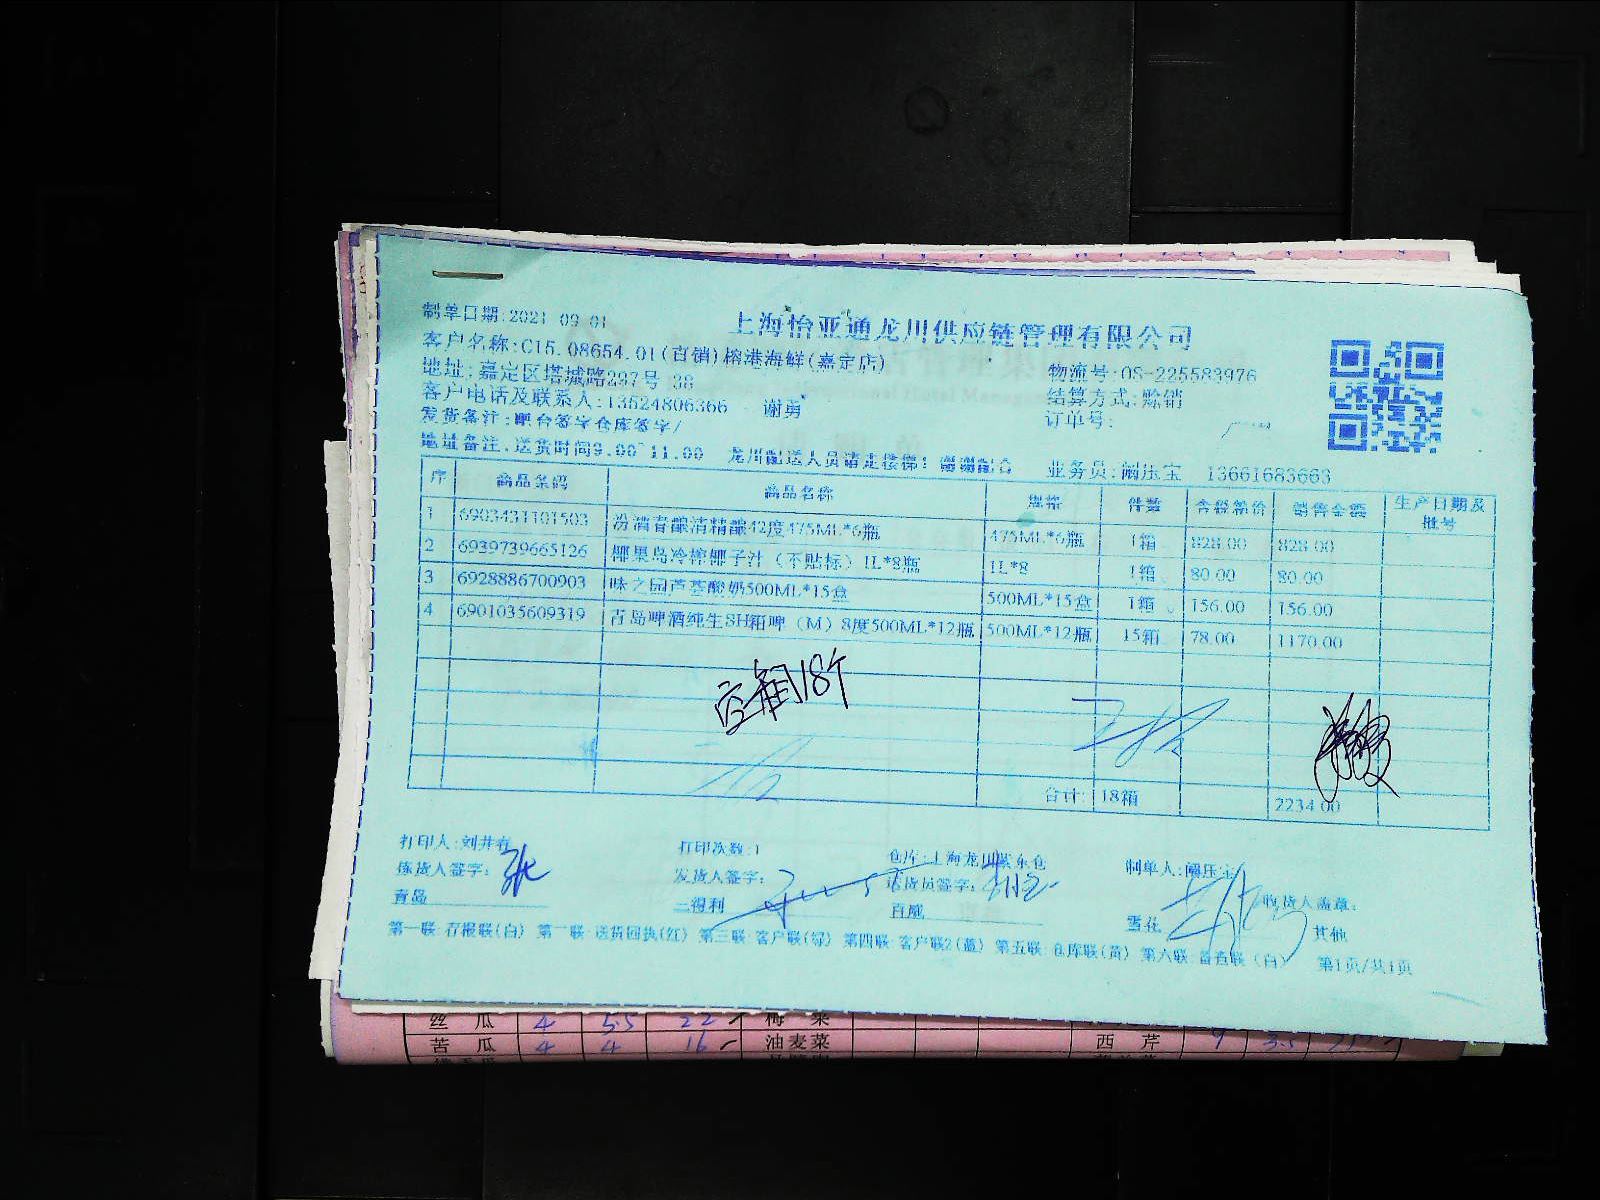 制单日期:2021 09 01
上海怡亚通龙川供应链管理有限公司
客户名称:C15.08654.01(百销)榕港海鲜(嘉定店)
地址:嘉定区塔城路297号 38
物流号:OS-225583976
客户电话及联系人:13524806366 谢勇
结算方式:赊销
发货备注:吧台签字仓库签字/
订单号:
地址备注:送货时间9.00 11.00 龙川配送人员请走楼梯!谢谢配合
业务员:阚压宝 13661683663
序 商品条码 商品名称 规格 件数 含税箱价 销售金额 生产日期及批号
1 6903431101503 汾酒青酿清精酿42度475ML*6瓶 475ML*6瓶 1箱 828.00 828.00
2 6939739665126 椰果岛冷榨椰子汁(不贴标)1L*8瓶 1L*8 1箱 80.00 80.00
3 6928886700903 味之园芦荟酸奶500ML*15盒 500ML*15盒 1箱 156.00 156.00
4 6901035609319 青岛啤酒纯生SH箱啤(M)8度500ML*12瓶 500ML*12瓶 15箱 78.00 1170.00
18个
合计: 18箱 2234.00
打印人:刘井春 打印次数:1 仓库:上海龙川 东仓 制单人:阚压宝
拣货人签字: 张 发货人签字: 送货员签字: 收货人盖章:
青岛 三得利 百威 雪花 其他
第一联:存根联(白) 第二联:送货回执(红) 第三联:客户联(绿) 第四联:客户联2(蓝) 第五联:仓库联(黄) 第六联:备查联(白) 第1页/共1页
丝瓜 4 5.5 22 梅菜
苦瓜 4 4 16 油麦菜 西芹 9 3.5